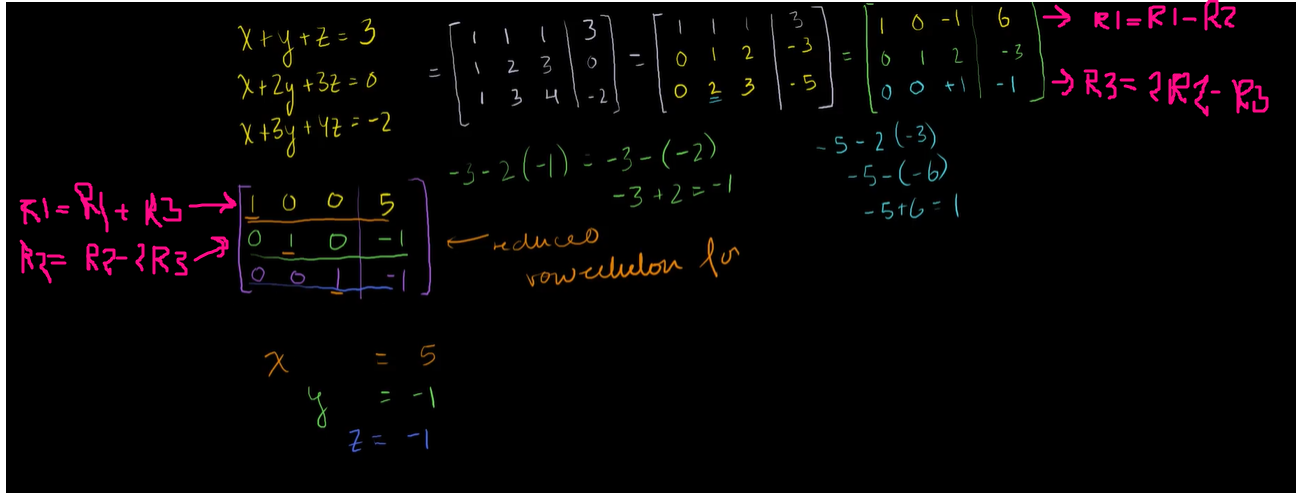 x+y+z=3
x+2y+3z=0
x+3y+4z=-2
= [1 1 1 | 3]
[1 2 3 | 0]
[1 3 4 | -2]
= [1 1 1 | 3]
[0 1 2 | -3]
[0 2 3 | -5]
= [1 0 -1 | 6] → R1=R1-R2
[0 1 2 | -3]
[0 0 +1 | -1] → R3=2R2-R3
-3-2(-1) = -3-(-2)
-3+2=-1
-5-2(-3)
-5-(-6)
-5+6=1
R1=R1+R3 → [1 0 0 | 5]
R2=R2-2R3 → [0 1 0 | -1]
[0 0 1 | -1]
← reduced
row echelon for
x = 5
y = -1
z = -1